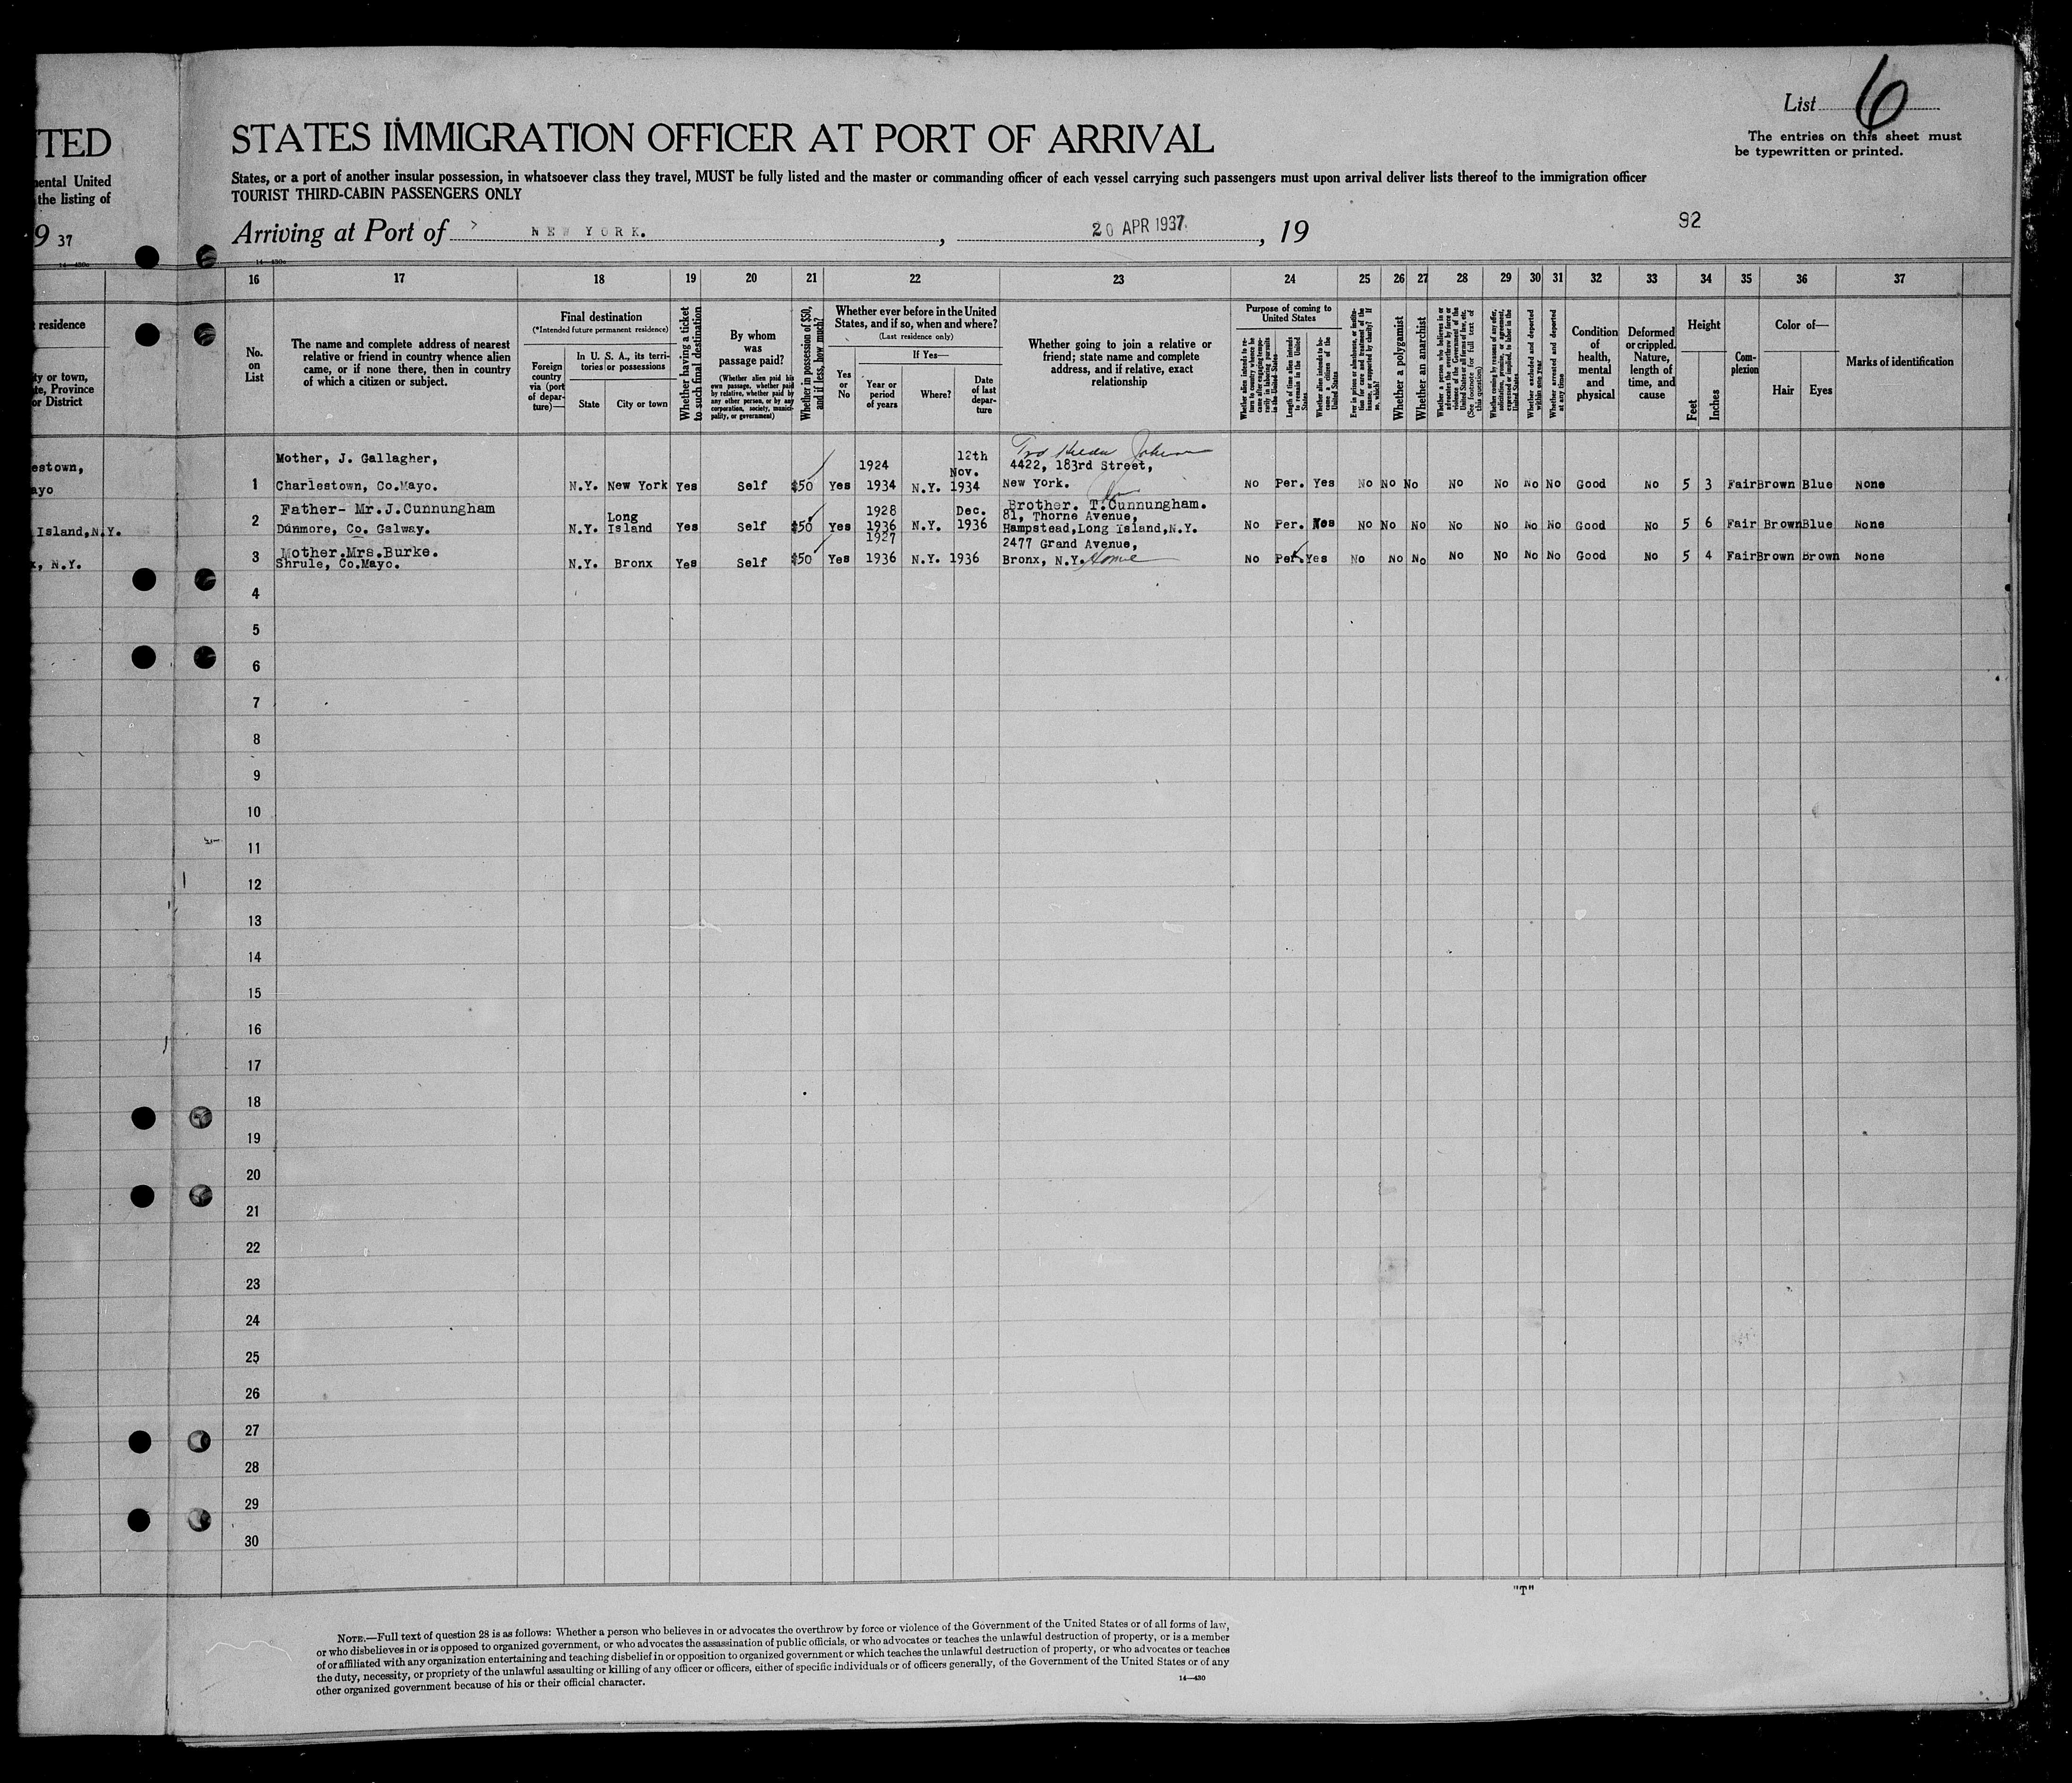 List 6
The entries on this sheet must
be typewritten or printed.
TED
STATES IMMIGRATION OFFICER AT PORT OF ARRIVAL
ental United
the listing of
States, or a port of another insular possession, in whatsoever class they travel, MUST be fully listed and the master or commanding officer of each vessel carrying such passengers must upon arrival deliver lists thereof to the immigration officer
TOURIST THIRD-CABIN PASSENGERS ONLY
9 37
Arriving at Port of NEW YORK. , 20 APR 1937. , 19
92
14—430a
14—430a
16 17 18 19 20 21 22 23 24 25 26 27 28 29 30 31 32 33 34 35 36 37
residence
ty or town,
te, Province
or District
No.
on
List
The name and complete address of nearest
relative or friend in country whence alien
came, or if none there, then in country
of which a citizen or subject.
Final destination
(*Intended future permanent residence)
Foreign
country
via (port
of depar-
ture)—
In U. S. A., its terri-
tories or possessions
State City or town
Whether having a ticket
to such final destination
By whom
was
passage paid?
(Whether alien paid his
own passage, whether paid
by relative, whether paid by
any other person, or by any
corporation, society, munici-
pality, or government)
Whether in possession of $50,
and if less, how much?
Whether ever before in the United
States, and if so, when and where?
(Last residence only)
Yes
or
No
If Yes—
Year or
period
of years
Where?
Date
of last
depar-
ture
Whether going to join a relative or
friend; state name and complete
address, and if relative, exact
relationship
Purpose of coming to
United States
Whether alien intends to re-
turn to country whence he
came after engaging tempo-
rarily in laboring pursuits
in the United States
Length of time alien intends
to remain in the United
States
Whether alien intends to be-
come a citizen of the
United States
Ever in prison or almshouse, or institu-
tion for care and treatment of the
insane, or supported by charity? If
so, which?
Whether a polygamist
Whether an anarchist
Whether a person who believes in or
advocates the overthrow by force or
violence of the Government of the
United States or all forms of law, etc.
(See footnote for full text of
this question)
Whether coming by reasons of any offer,
solicitation, promise, or agreement,
expressed or implied, to labor in the
United States
Whether excluded and deported
within one year
Whether arrested and deported
at any time
Condition
of
health,
mental
and
physical
Deformed
or crippled.
Nature,
length of
time, and
cause
Height
Feet Inches
Com-
plexion
Color of—
Hair Eyes
Marks of identification
estown,
ayo
1 Mother, J. Gallagher,
Charlestown, Co.Mayo. N.Y. New York Yes Self $50 Yes 1924
1934 N.Y. 12th
Nov.
1934 4422, 183rd Street,
New York. No Per. Yes No No No No No No No Good No 5 3 Fair Brown Blue None
Island,N.Y.
2 Father- Mr.J.Cunnungham
Dunmore, Co. Galway. N.Y. Long
Island Yes Self $50 Yes 1928
1936 N.Y. Dec.
1936 Brother. T.Cunnungham.
81, Thorne Avenue,
Hampstead,Long Island,N.Y. No Per. Yes No No No No No No No Good No 5 6 Fair Brown Blue None
, N.Y.
3 Mother.Mrs.Burke.
Shrule, Co.Mayo. N.Y. Bronx Yes Self $50 Yes 1927
1936 N.Y. 1936 2477 Grand Avenue,
Bronx, N.Y. Home No Per. Yes No No No No No No No Good No 5 4 Fair Brown Brown None
4
5
6
7
8
9
10
11
12
13
14
15
16
17
18
19
20
21
22
23
24
25
26
27
28
29
30
"T"
NOTE.—Full text of question 28 is as follows: Whether a person who believes in or advocates the overthrow by force or violence of the Government of the United States or of all forms of law,
or who disbelieves in or is opposed to organized government, or who advocates the assassination of public officials, or who advocates or teaches the unlawful destruction of property, or is a member
of or affiliated with any organization entertaining and teaching disbelief in or opposition to organized government or which teaches the unlawful destruction of property, or who advocates or teaches
the duty, necessity, or propriety of the unlawful assaulting or killing of any officer or officers, either of specific individuals or of officers generally, of the Government of the United States or of any
other organized government because of his or their official character.
14—430